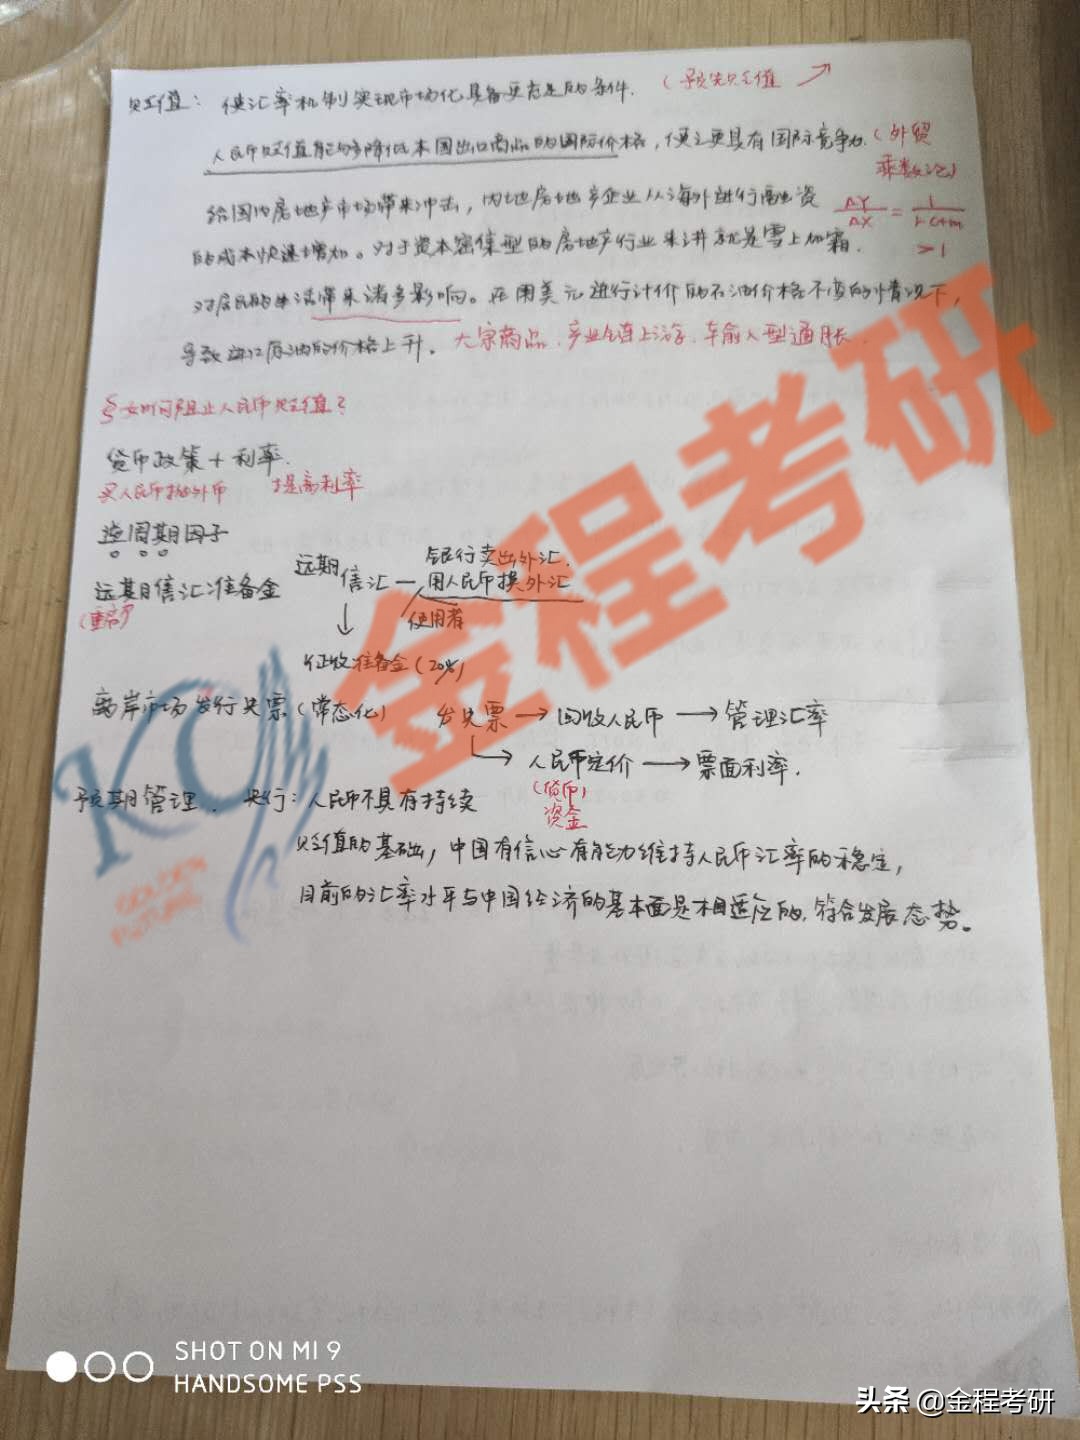 贬值：使汇率机制实现市场化具备更充足的条件. (预先贬值 ↗
人民币贬值能够降低本国出口商品的国际价格，使之更具有国际竞争力 (外贸
乘数论)
给国内房地产市场带来冲击，内地房地产企业从海外进行融资 ΔY/ΔX = 1/1-c+m
的成本快速增加。对于资本密集型的房地产行业来讲就是雪上加霜. >1
对居民的生活带来诸多影响。在用美元进行计价的石油价格不变的情况下，
导致进口原油的价格上升. 大宗商品. 产业链上游. 输入型通胀.
如何阻止人民币贬值?
货币政策 + 利率.
买人民币抛外币 提高利率
逆周期因子
远期售汇准备金 远期售汇 — 银行卖出外汇.
用人民币换外汇
(重启) ↓ 使用者
征收准备金 (20%)
离岸市场发行央票 (常态化) 发央票 → 回收人民币 → 管理汇率
↳ 人民币定价 → 票面利率.
(货币)
资金
预期管理. 央行：人民币不具有持续
贬值的基础，中国有信心有能力维持人民币汇率的稳定，
目前的汇率水平与中国经济的基本面是相适应的, 符合发展态势。
金程考研
GOLDEN
FUTURE
SHOT ON MI 9
HANDSOME PSS
头条 @金程考研